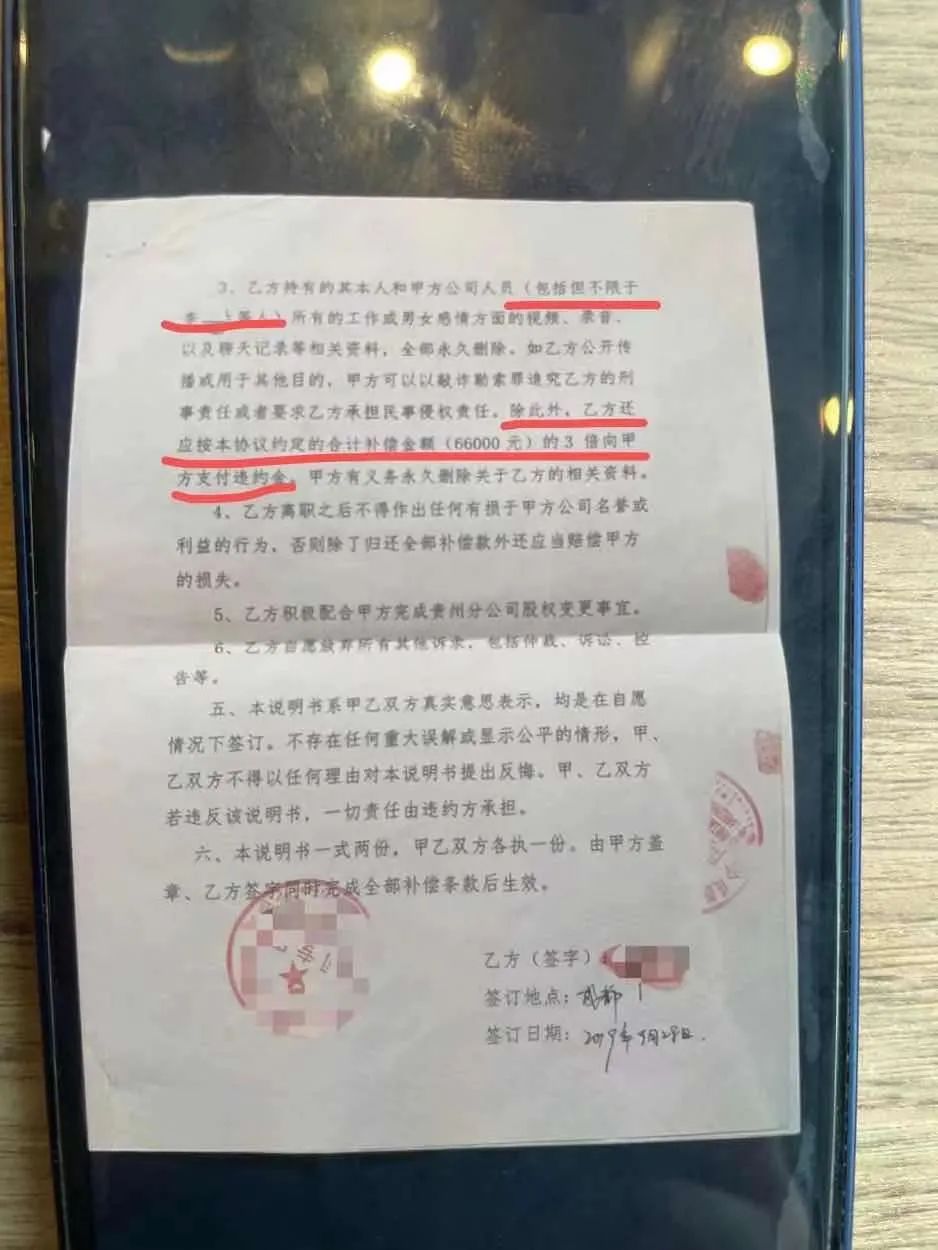 3、乙方持有的其本人和甲方公司人员（包括但不限于
李 上等人）所有的工作或男女感情方面的视频、录音、
以及聊天记录等相关资料，全部永久删除。如乙方公开传
播或用于其他目的，甲方可以以敲诈勒索罪追究乙方的刑
事责任或者要求乙方承担民事侵权责任。除此外，乙方还
应按本协议约定的合计补偿金额（66000元）的3倍向甲
方支付违约金。甲方有义务永久删除关于乙方的相关资料。
4、乙方离职之后不得作出任何有损于甲方公司名誉或
利益的行为，否则除了归还全部补偿款外还应当赔偿甲方
的损失。
5、乙方积极配合甲方完成贵州分公司股权变更事宜。
6、乙方自愿放弃所有其他诉求，包括仲裁、诉讼、控
告等。
五、本说明书系甲乙双方真实意思表示，均是在自愿
情况下签订。不存在任何重大误解或显示公平的情形，甲、
乙双方不得以任何理由对本说明书提出反悔。甲、乙双方
若违反该说明书，一切责任由违约方承担。
六、本说明书一式两份，甲乙双方各执一份。由甲方盖
章、乙方签字同时完成全部补偿条款后生效。
乙方（签字）：
签订地点：成都
签订日期：2019年9月29日.